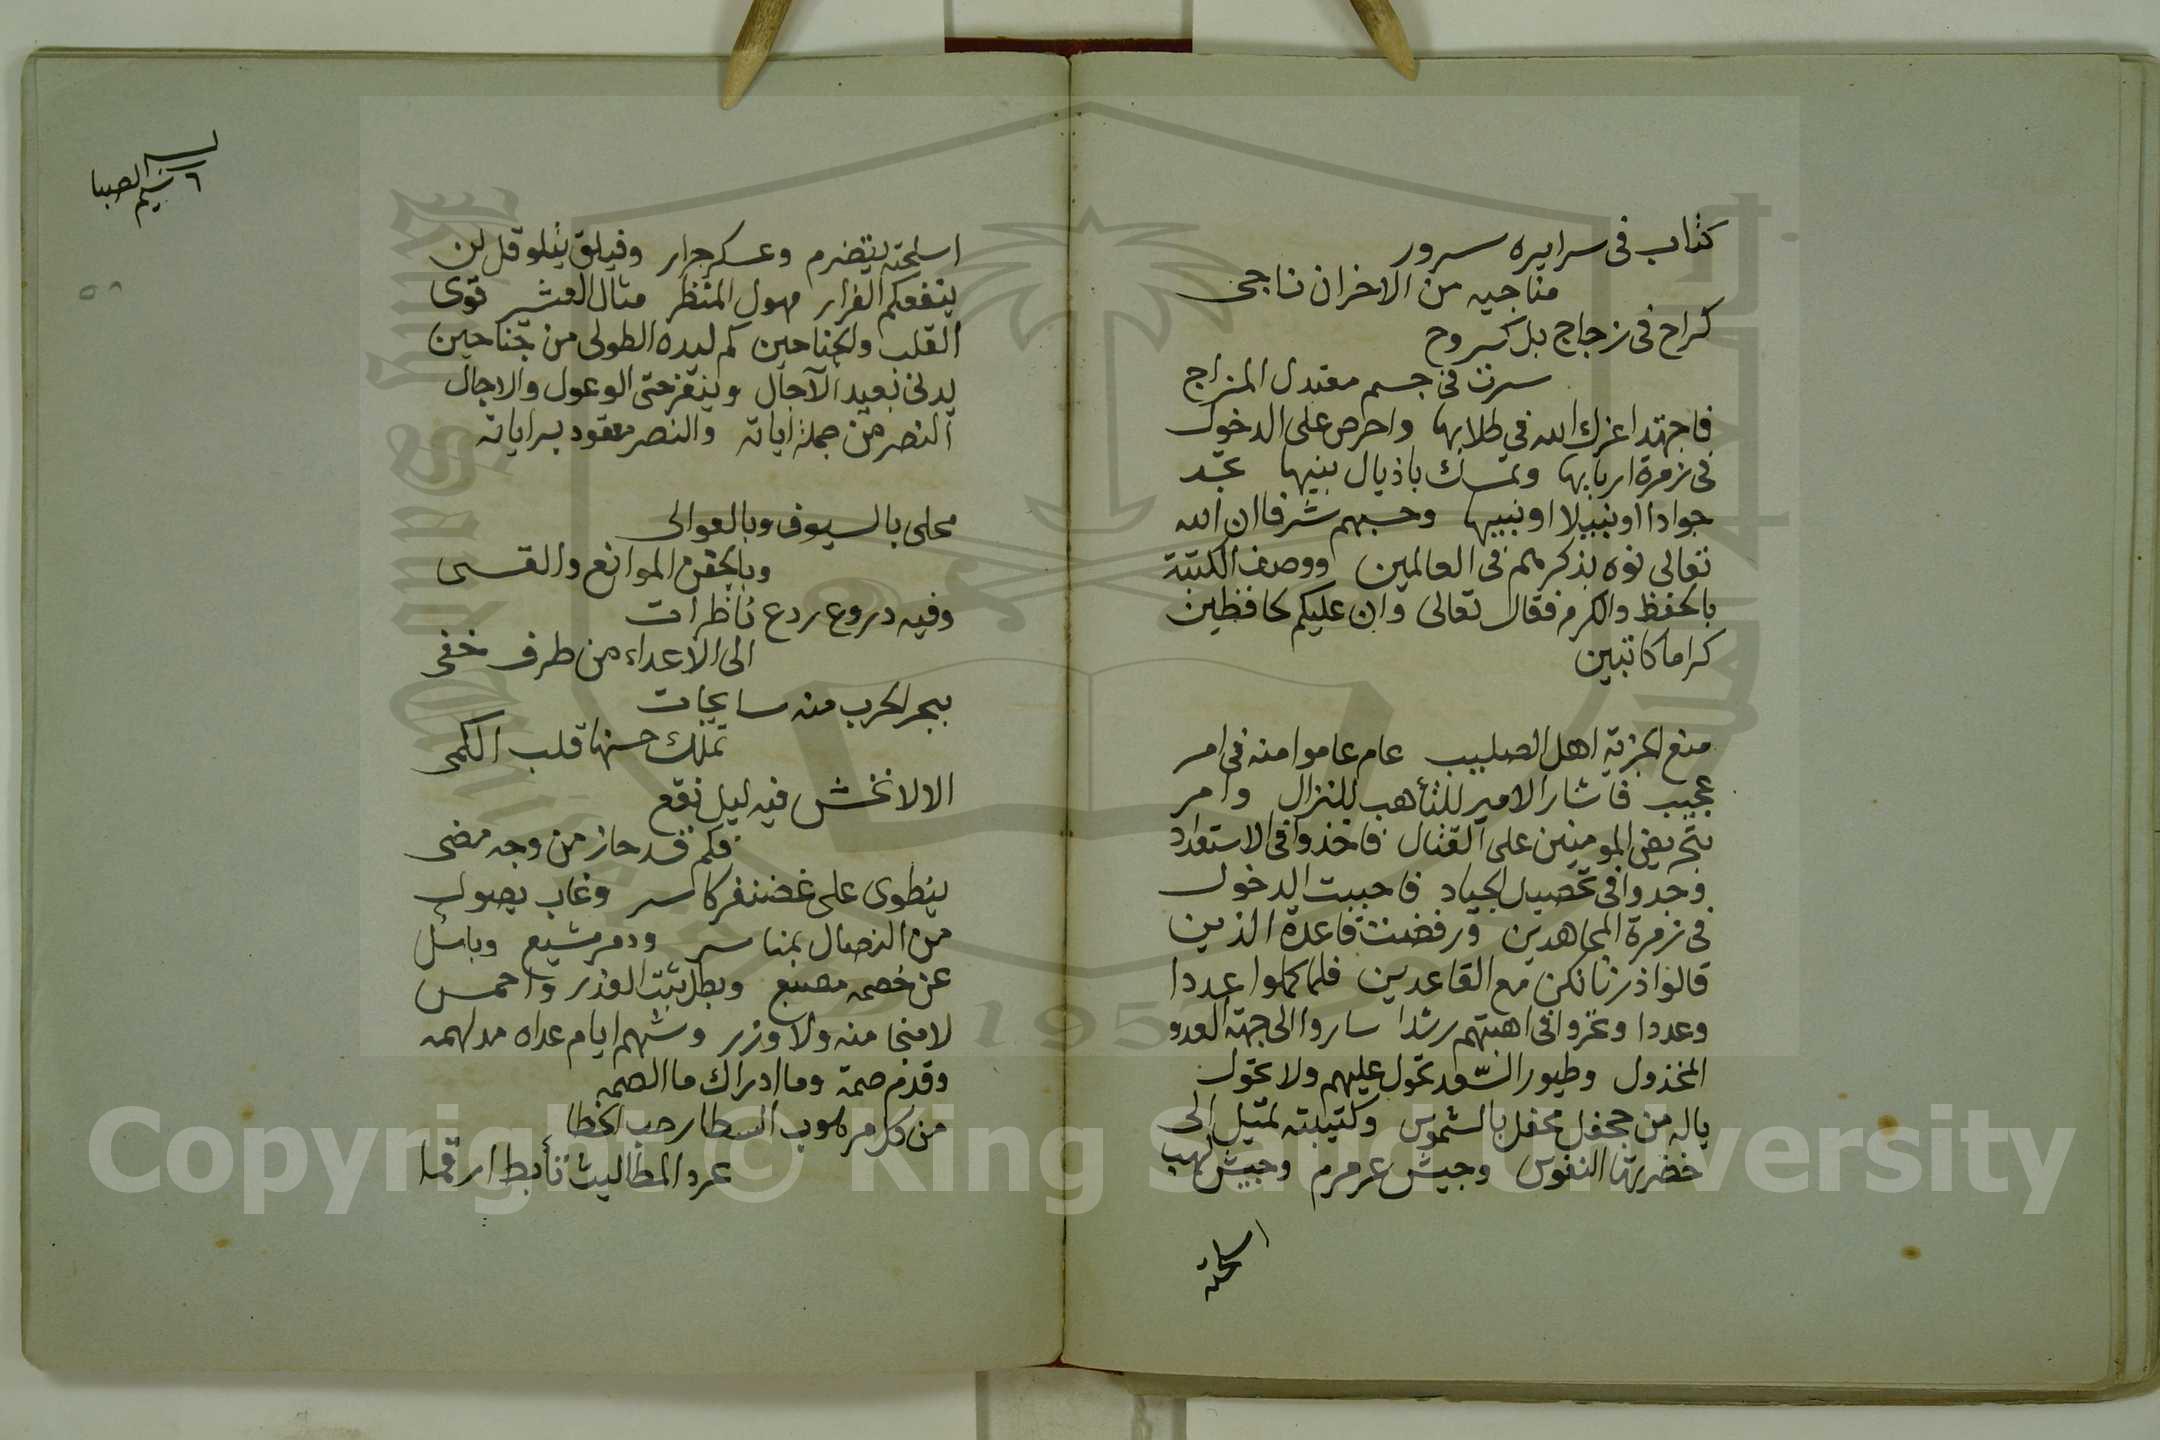 كتاب في سرايره سرور
مناجيه من الاخزان ناجي
كراح في زجاج بل كروح
سرت في جسم معتدل المزاج
فاجهتد اعزك الله في طلابها واحرص على الدخول
في زمرة اربابها وتمسك باذيال بنيها تجد
جوادا اونبيلا اونبيها وحسبهم شرفا ان الله
تعالى نوه بذكرهم في العالمين ووصف الكتبة
بالحفظ والكرم فقال تعالى وان عليكم لحافظين
كراما كاتبين
منع الجزية اهل الصليب عام عاموا منه في امر
عجيب فاشار الامير للتأهب للنزال وامر
بتحريض المومنين على القتال فاخذوا في الاستعداد
وجدوا في تحصيل الجياد فاحببت الدخول
في زمرة المجاهدين ورفضت قاعدة الذين
قالوا ذرنا نكن مع القاعدين فلما كملوا عددا
وعددا وتحروا في اهبتهم رشدا ساروا الى جهة العدو
المخذول وطيور السعد تحول عليهم ولا تحول
ياله من جحفل محفل بالشموس وكتيبته تميل الى
خضرتها النفوس وجيش عرمرم وجيش لهب
اسلحته
اسلحته يتضرم وعسكر جرار وفيلق يتلو قل لن
ينفعكم الفرار مهول المنظر مثال العشر قوى
القلب والجناحين كم ليده الطولى من جناحين
يدنى بعيد الآجال وينقز حتى الوعول والاجال
النصر من جملة اياته والنصر معقود براياته
محلى بالسيوف وبالعوالى
وبالجقن الموانع والقسى
وفيه دروع ردع ناظرات
الى الاعداء من طرف خفى
ببحر الحرب منه سابحات
تملك حسنها قلب الكمى
الا لا تخش فيه ليل نقع
فكم قد حاز من وجه مضى
ينطوى على غضنفر كاسر وغاب يصول
من النصال بمناسر وذمر مشيع وباسل
عن خصمه مصنع وبطل ثبت الغدر واحمس
لا منجا منه ولا وزر وشهم ايام عداه مدلهمه
وقدم صمة وما ادراك ما الصمه
من كل مرهوب السطا رحب الخطا
عرد المطا ليث تأبط ارقما
نسيم الصبا
٥٨
Copyright © King Saud University
King Saud University
1957